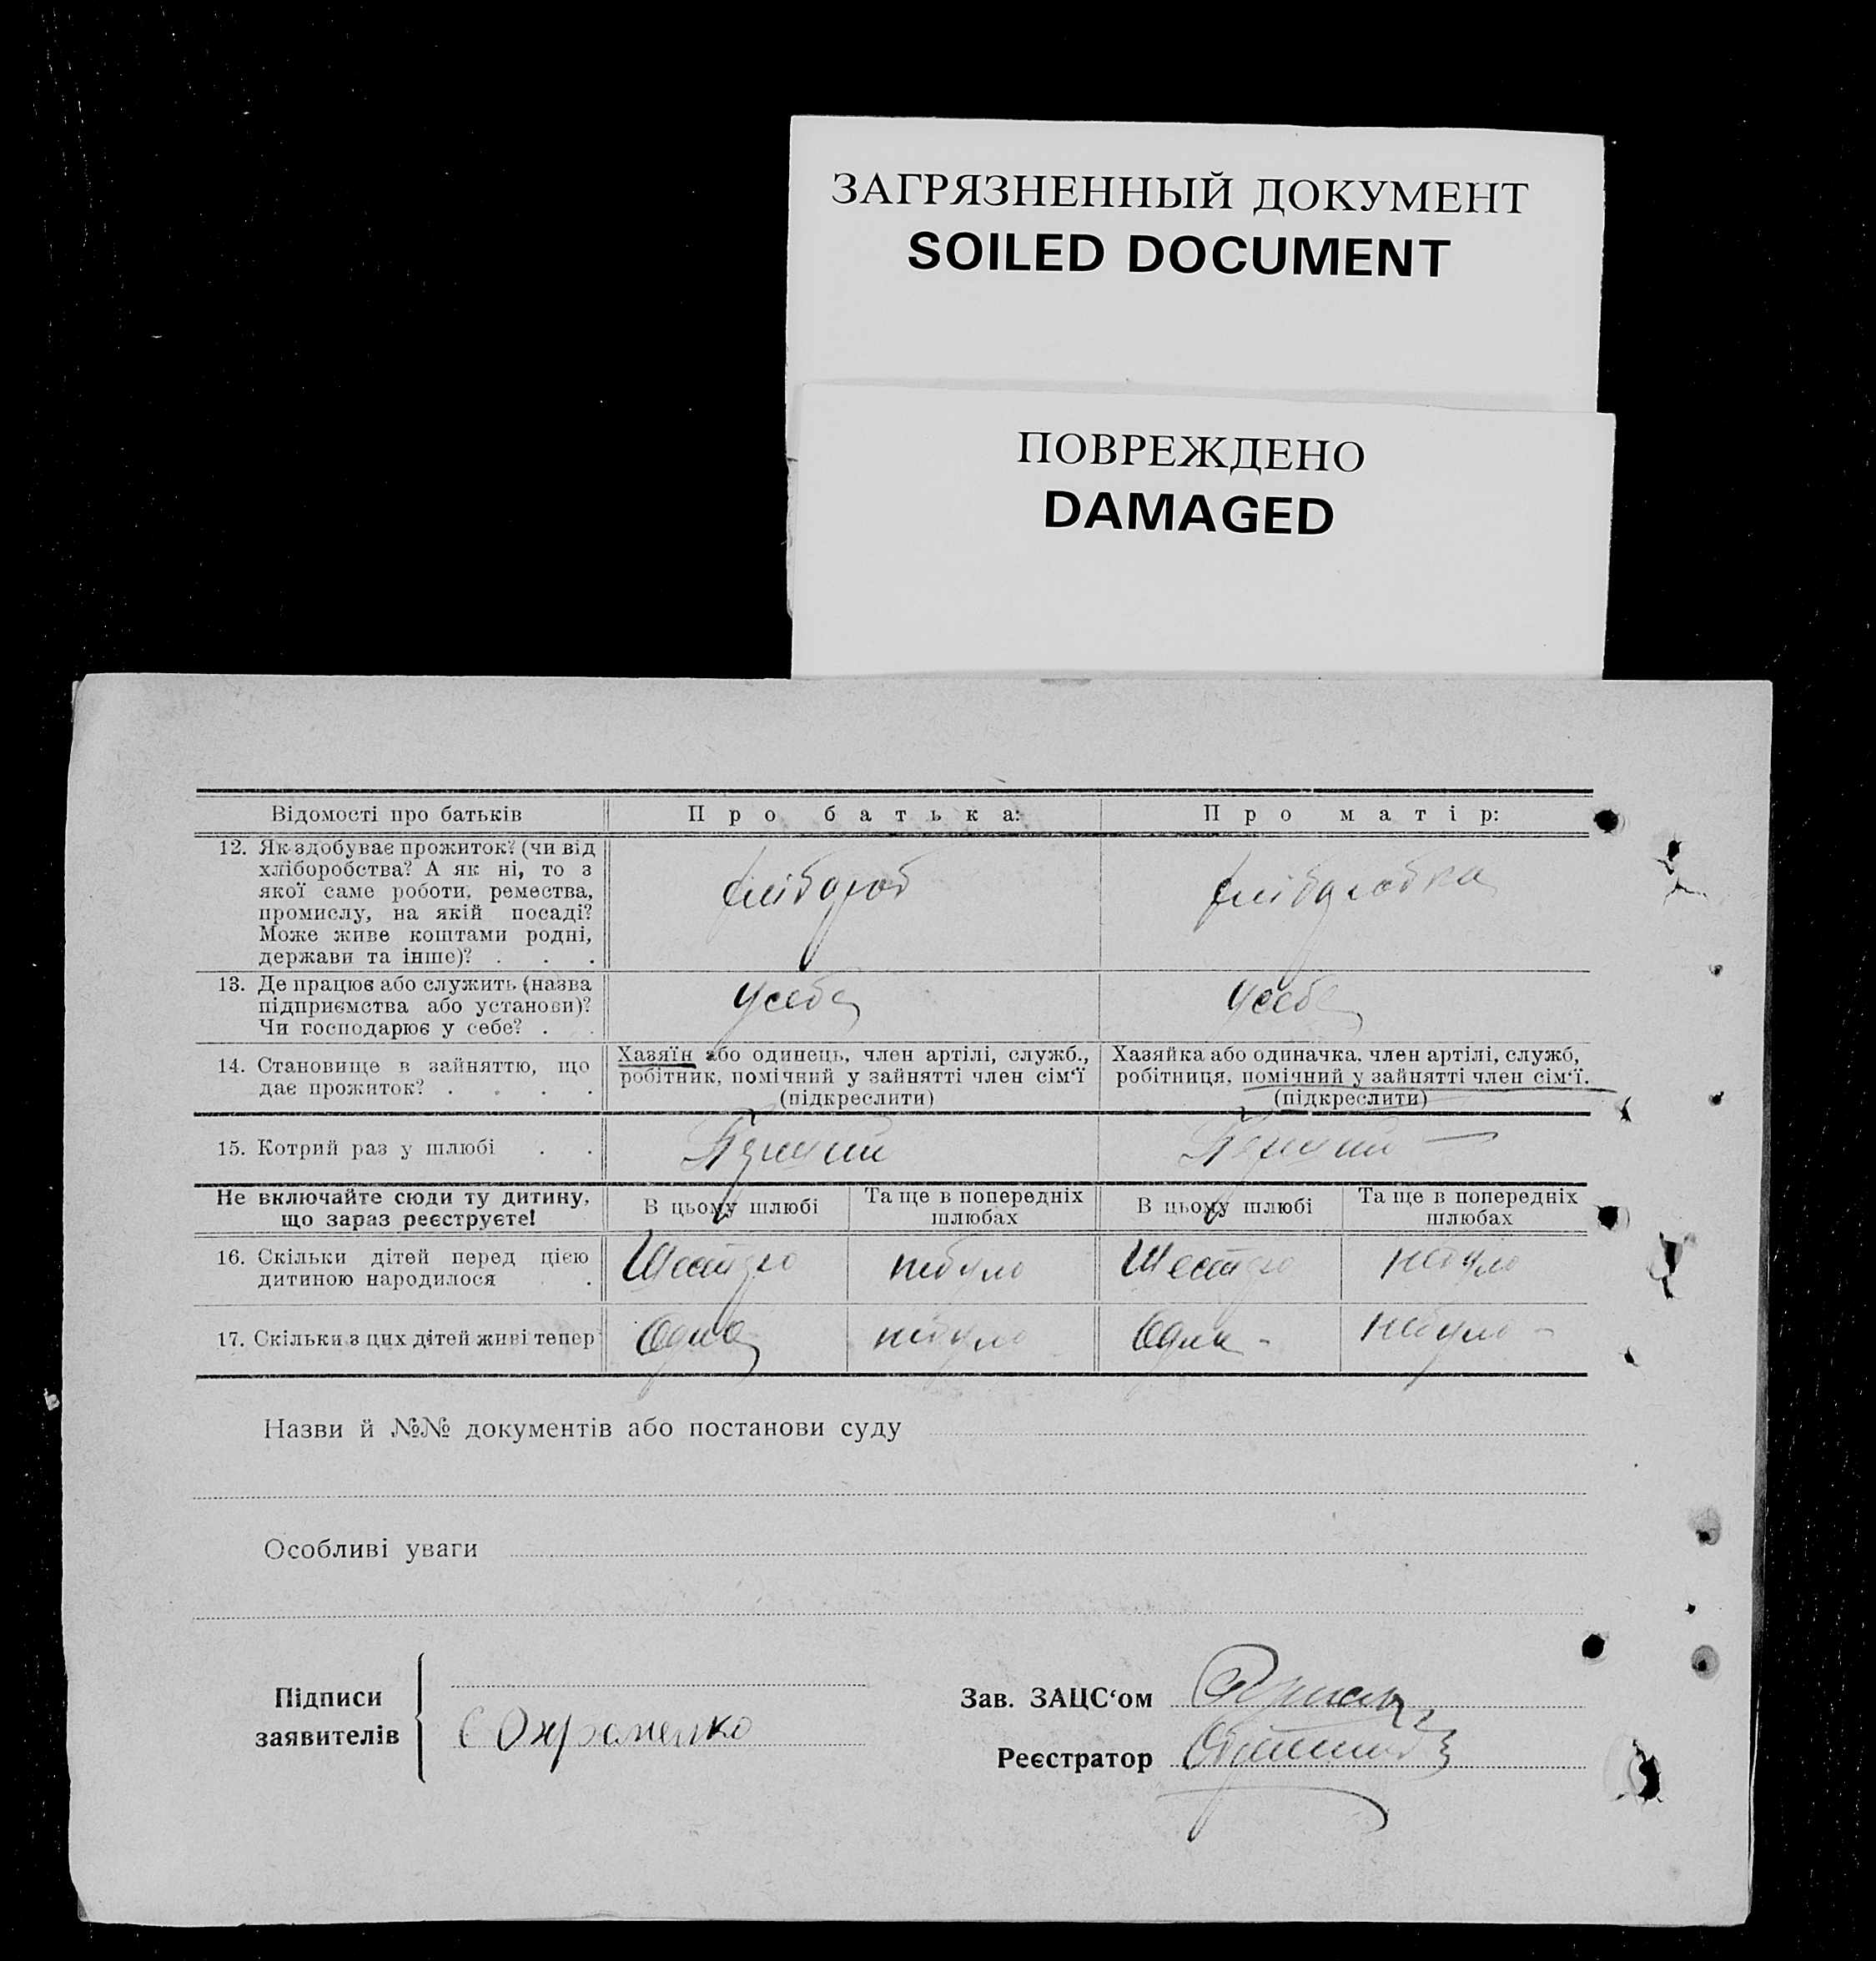 ЗАГРЯЗНЕННЫЙ ДОКУМЕНТ
SOILED DOCUMENT
ПОВРЕЖДЕНО
DAMAGED
Відомості про батьків
Про батька:
Про матір:
12. Як здобуває прожиток? (чи від
хліборобства? А як ні, то з
якої саме роботи, ремества,
промислу, на якій посаді?
Може живе коштами родні,
держави та інше)? . . .
хлібороб
хліборобка
13. Де працює або служить (назва
підприємства або установи)?
Чи господарює у себе? . .
усебе
усебе
14. Становище в зайняттю, що
дає прожиток? . . . .
Хазяїн або одинець, член артілі, служб.,
робітник, помічний у зайнятті член сім'ї
(підкреслити)
Хазяйка або одиначка, член артілі, служб,
робітниця, помічний у зайнятті член сім'ї.
(підкреслити)
15. Котрий раз у шлюбі . .
Перший
Перший
Не включайте сюди ту дитину,
що зараз реєструєте!
В цьому шлюбі
Та ще в попередніх
шлюбах
В цьому шлюбі
Та ще в попередніх
шлюбах
16. Скільки дітей перед цією
дитиною народилося .
Шестеро
небуло
Шестеро
небуло
17. Скільки з цих дітей живі тепер
Одна
небуло
Одна -
небуло -
Назви й №№ документів або постанови суду
Особливі уваги
Підписи
заявителів
Зав. ЗАЦС'ом
Реєстратор